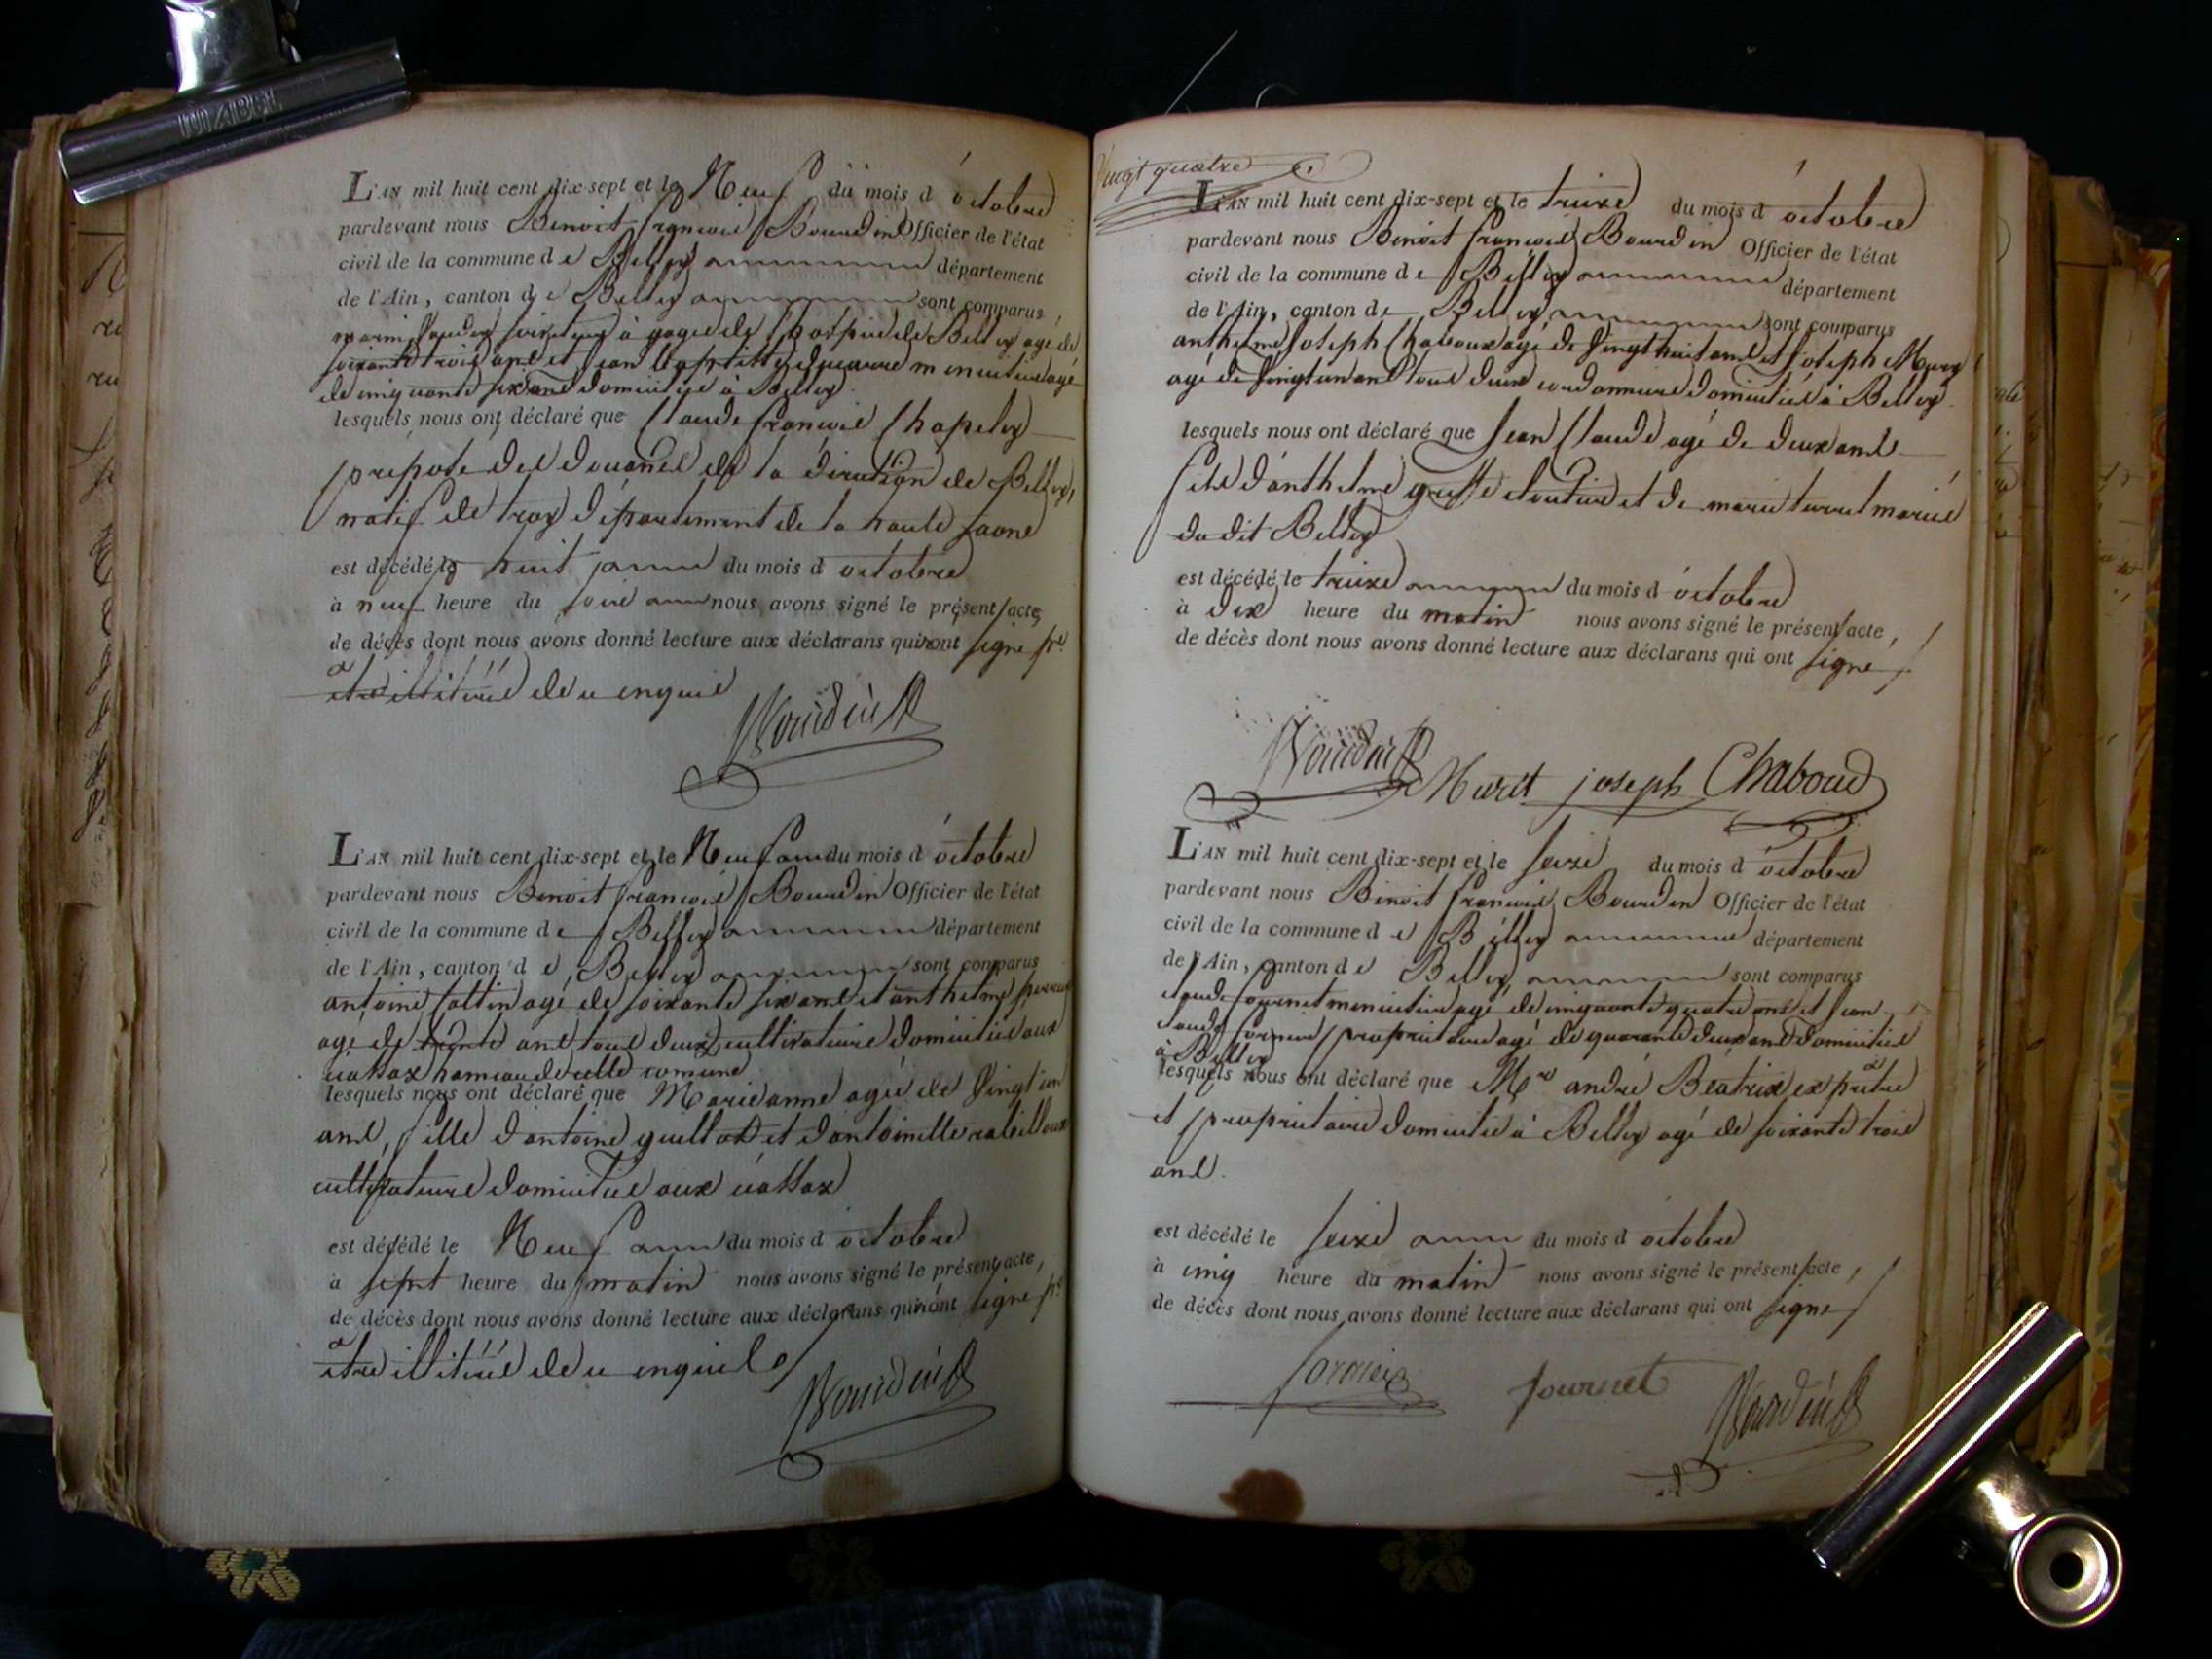 L'AN mil huit cent dix-sept et le Neuf du mois d'octobre
pardevant nous Benoit françois Bourdin Officier de l'état
civil de la commune de Belley département
de l'Ain, canton de Belley sont comparus
à gages de l'hospice de Belley agé de
soixante trois ans et jean baptiste menuisier agé
de cinquante six ans domiciliés à Belley
lesquels nous ont déclaré que Claude françois Chapeley
préposé des douanes de la direction de Belley,
natif de département de la haute saone
est décédé le huit du mois d octobre
à neuf heure du soire nous avons signé le présent acte,
de décès dont nous avons donné lecture aux déclarans qui n'ont signé pr
être illitérés de ce enquis
Bourdin
L'AN mil huit cent dix-sept et le Neuf du mois d'octobre
pardevant nous Benoit françois Bourdin Officier de l'état
civil de la commune de Belley département
de l'Ain, canton de Belley sont comparus
antoine agé de soixante six ans et anthelme
agé de trente ans tous deux cultivateurs domiciliés aux
hameau de cette comune
lesquels nous ont déclaré que Marie anne agée de vingt un
ans, fille d'antoine et d'antoinette
cultivateurs domiciliés aux
est décédé le Neuf du mois d octobre
à sept heure du matin nous avons signé le présent acte,
de décès dont nous avons donné lecture aux déclarans qui n'ont signé pr
être illitérés de ce enquis
Bourdin
Vingt quatre
L'AN mil huit cent dix-sept et le treize du mois d'octobre
pardevant nous Benoit françois Bourdin Officier de l'état
civil de la commune de Belley département
de l'Ain, canton de Belley sont comparus
anthelme joseph Chaboux agé de vingt huit ans et joseph
agé de vingt un ans tous deux cordonniers domiciliés à Belley
lesquels nous ont déclaré que jean Claude agé de deux ans
fils d'anthelme cloutier et de marie mariés
du dit Belley
est décédé le treize du mois d octobre
à dix heure du matin nous avons signé le présent acte,
de décès dont nous avons donné lecture aux déclarans qui ont signé
Bourdin joseph Chaboud
L'AN mil huit cent dix-sept et le seize du mois d'octobre
pardevant nous Benoit françois Bourdin Officier de l'état
civil de la commune de Belley département
de l'Ain, canton de Belley sont comparus
claude fournet menuisier agé de cinquante quatre ans et jean
claude propriétaire agé de quarante deux ans domiciliés
à Belley
lesquels nous ont déclaré que Mre andré Béatrix ex prêtre
et propriétaire domicilié à Belley agé de soixante trois
ans.
est décédé le seize du mois d octobre
à cinq heure du matin nous avons signé le présent acte,
de décès dont nous avons donné lecture aux déclarans qui ont signé
fournet Bourdin